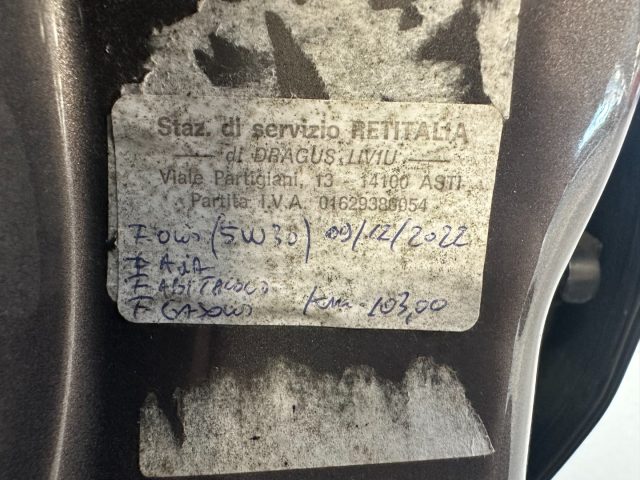 Staz. di servizio RETITALIA
di DRAGUS LIVIU
Viale Partigiani, 13 - 14100 ASTI
Partita I.V.A. 01629386054
F OLIO (5W30) 09/12/2022
F ARIA
F ABITACOLO
F GASOLIO Km 103,00